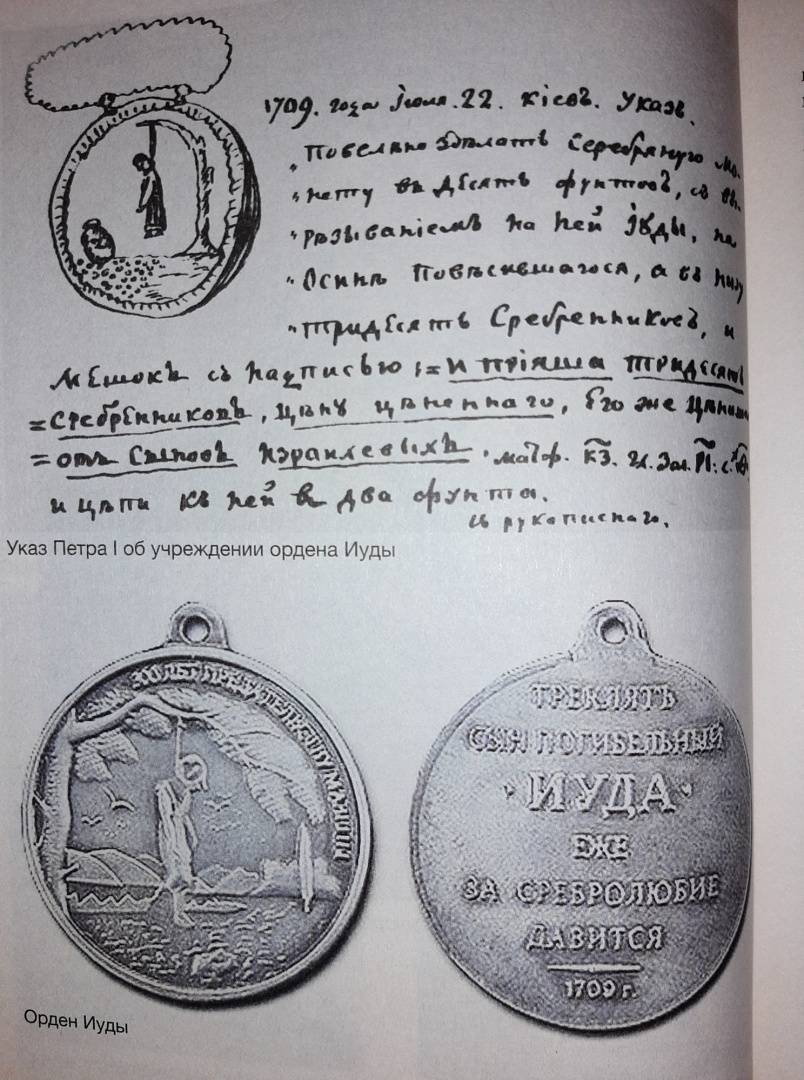 1709. года Іюля. 22. Кіевъ. Указъ.
Повелено здѣлать серебряную мо-
нету въ десять фунтовъ, съ вы-
рѣзываніемъ на ней Іуды, на
осинѣ повѣсившагося, а въ низу
тридесять сребренниковъ, и
мешокъ съ надписью := и пріяша тридесять
=сребренниковъ, цѣну цѣненнаго, Его же цѣниша
=отъ сыновъ Израилевыхъ. матф. КЗ.
и цѣпи къ ней въ два фунта.
изъ рукописнаго.
Указ Петра I об учреждении ордена Иуды
ТРЕКЛЯТЪ
СЫН ПОГИБЕЛЬНЫЙ
· ИУДА ·
ЕЖЕ
ЗА СРЕБРОЛЮБИЕ
ДАВИТСЯ
1709 г.
Орден Иуды